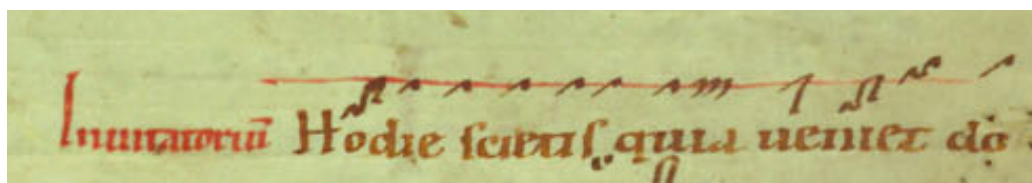 Inuitatoriū Hodie scietis quia ueniet do